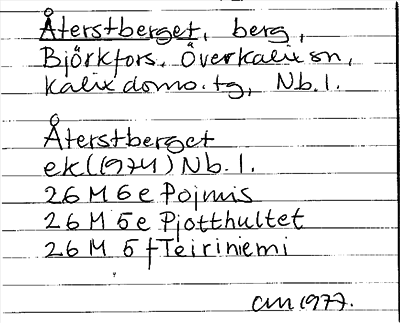 Återstberget, berg,
Björkfors, Överkalix sn,
Kalix doms. tg, Nb. l.
Återstberget
ek (1974) Nb. l.
26 M 6 e Pojmis
26 M 5 e Pjotthultet
26 M 5 f Teiriniemi
am 1977.